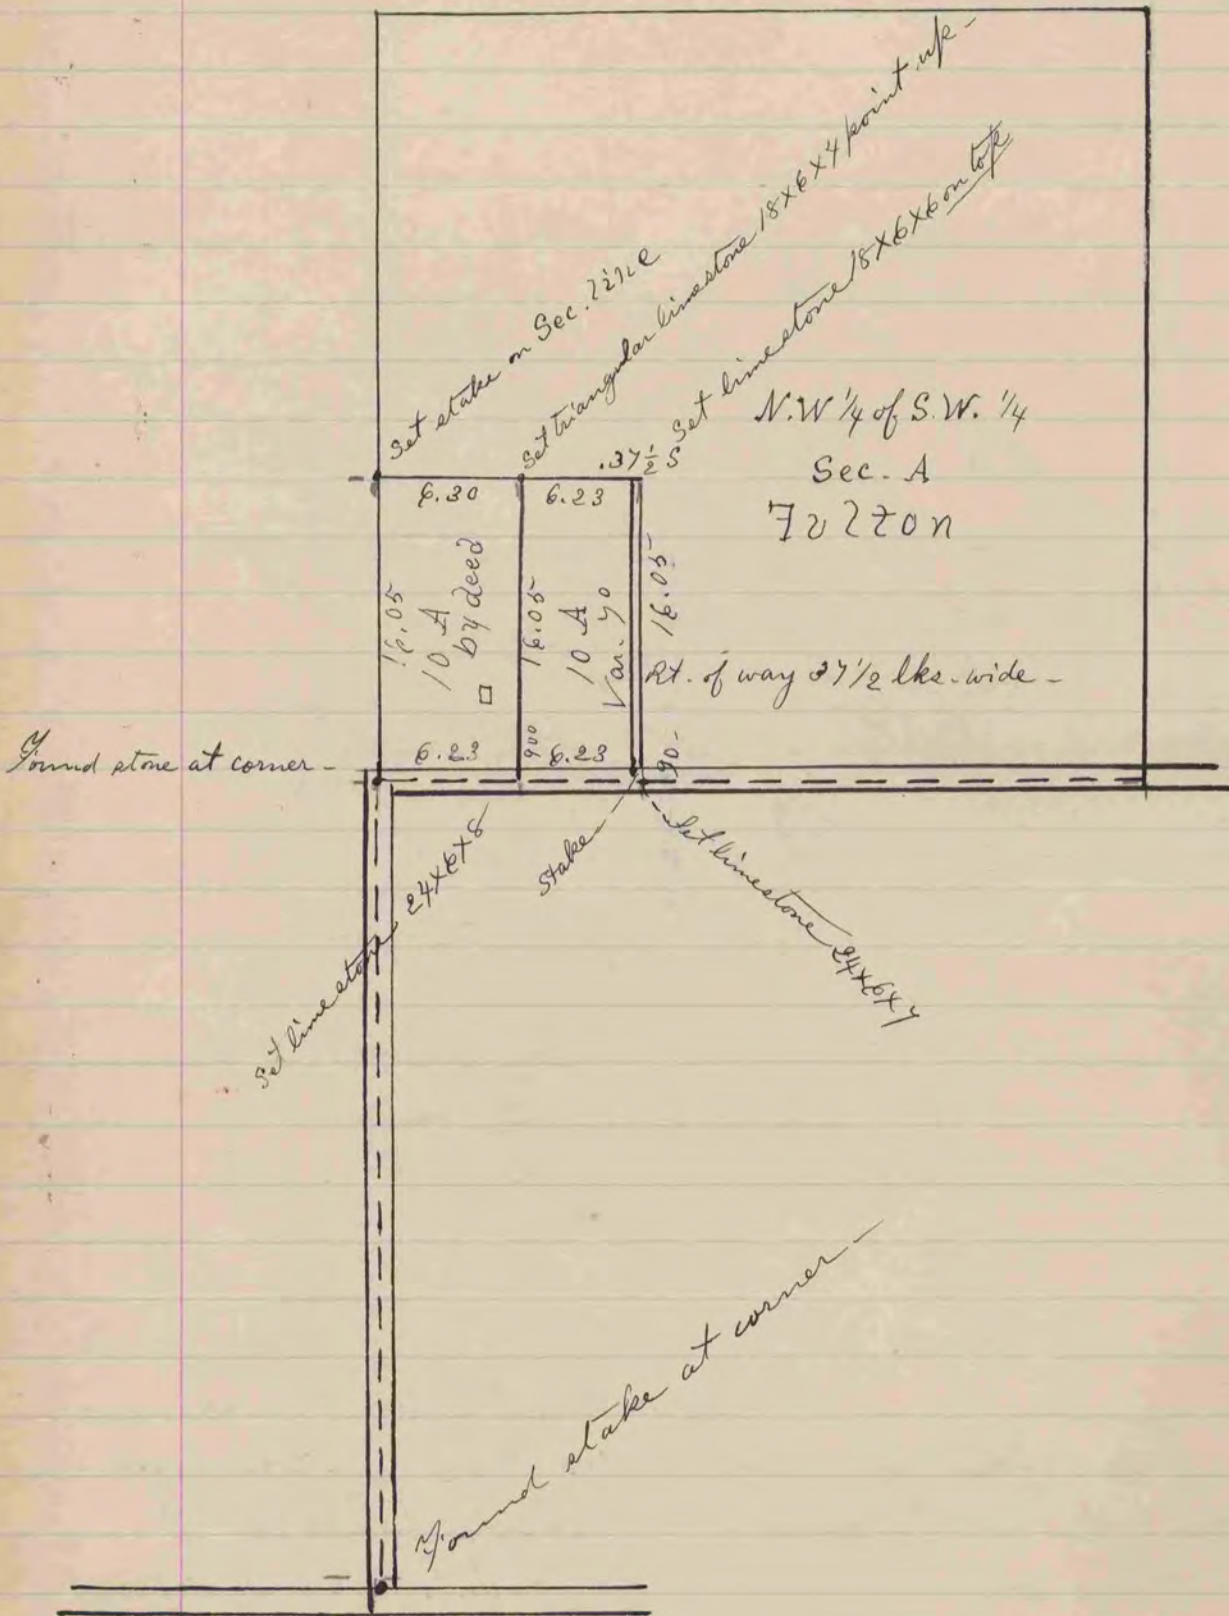 Set stake on Sec. line
Set triangular limestone 18x6x4 point up -
Set limestone 18x6x6 on top
N.W 1/4 of S.W. 1/4
Sec. A
Fulton
.37 1/2 S
6.30
6.23
16.05
10 A
by deed
16.05
10 A
Var. 7°
16.05
Rt. of way 37 1/2 lks. wide -
Found stone at corner -
6.23
90°
6.23
90-
Set limestone 24x6x8
Stake
Set limestone 24x6x7
Found stake at corner -